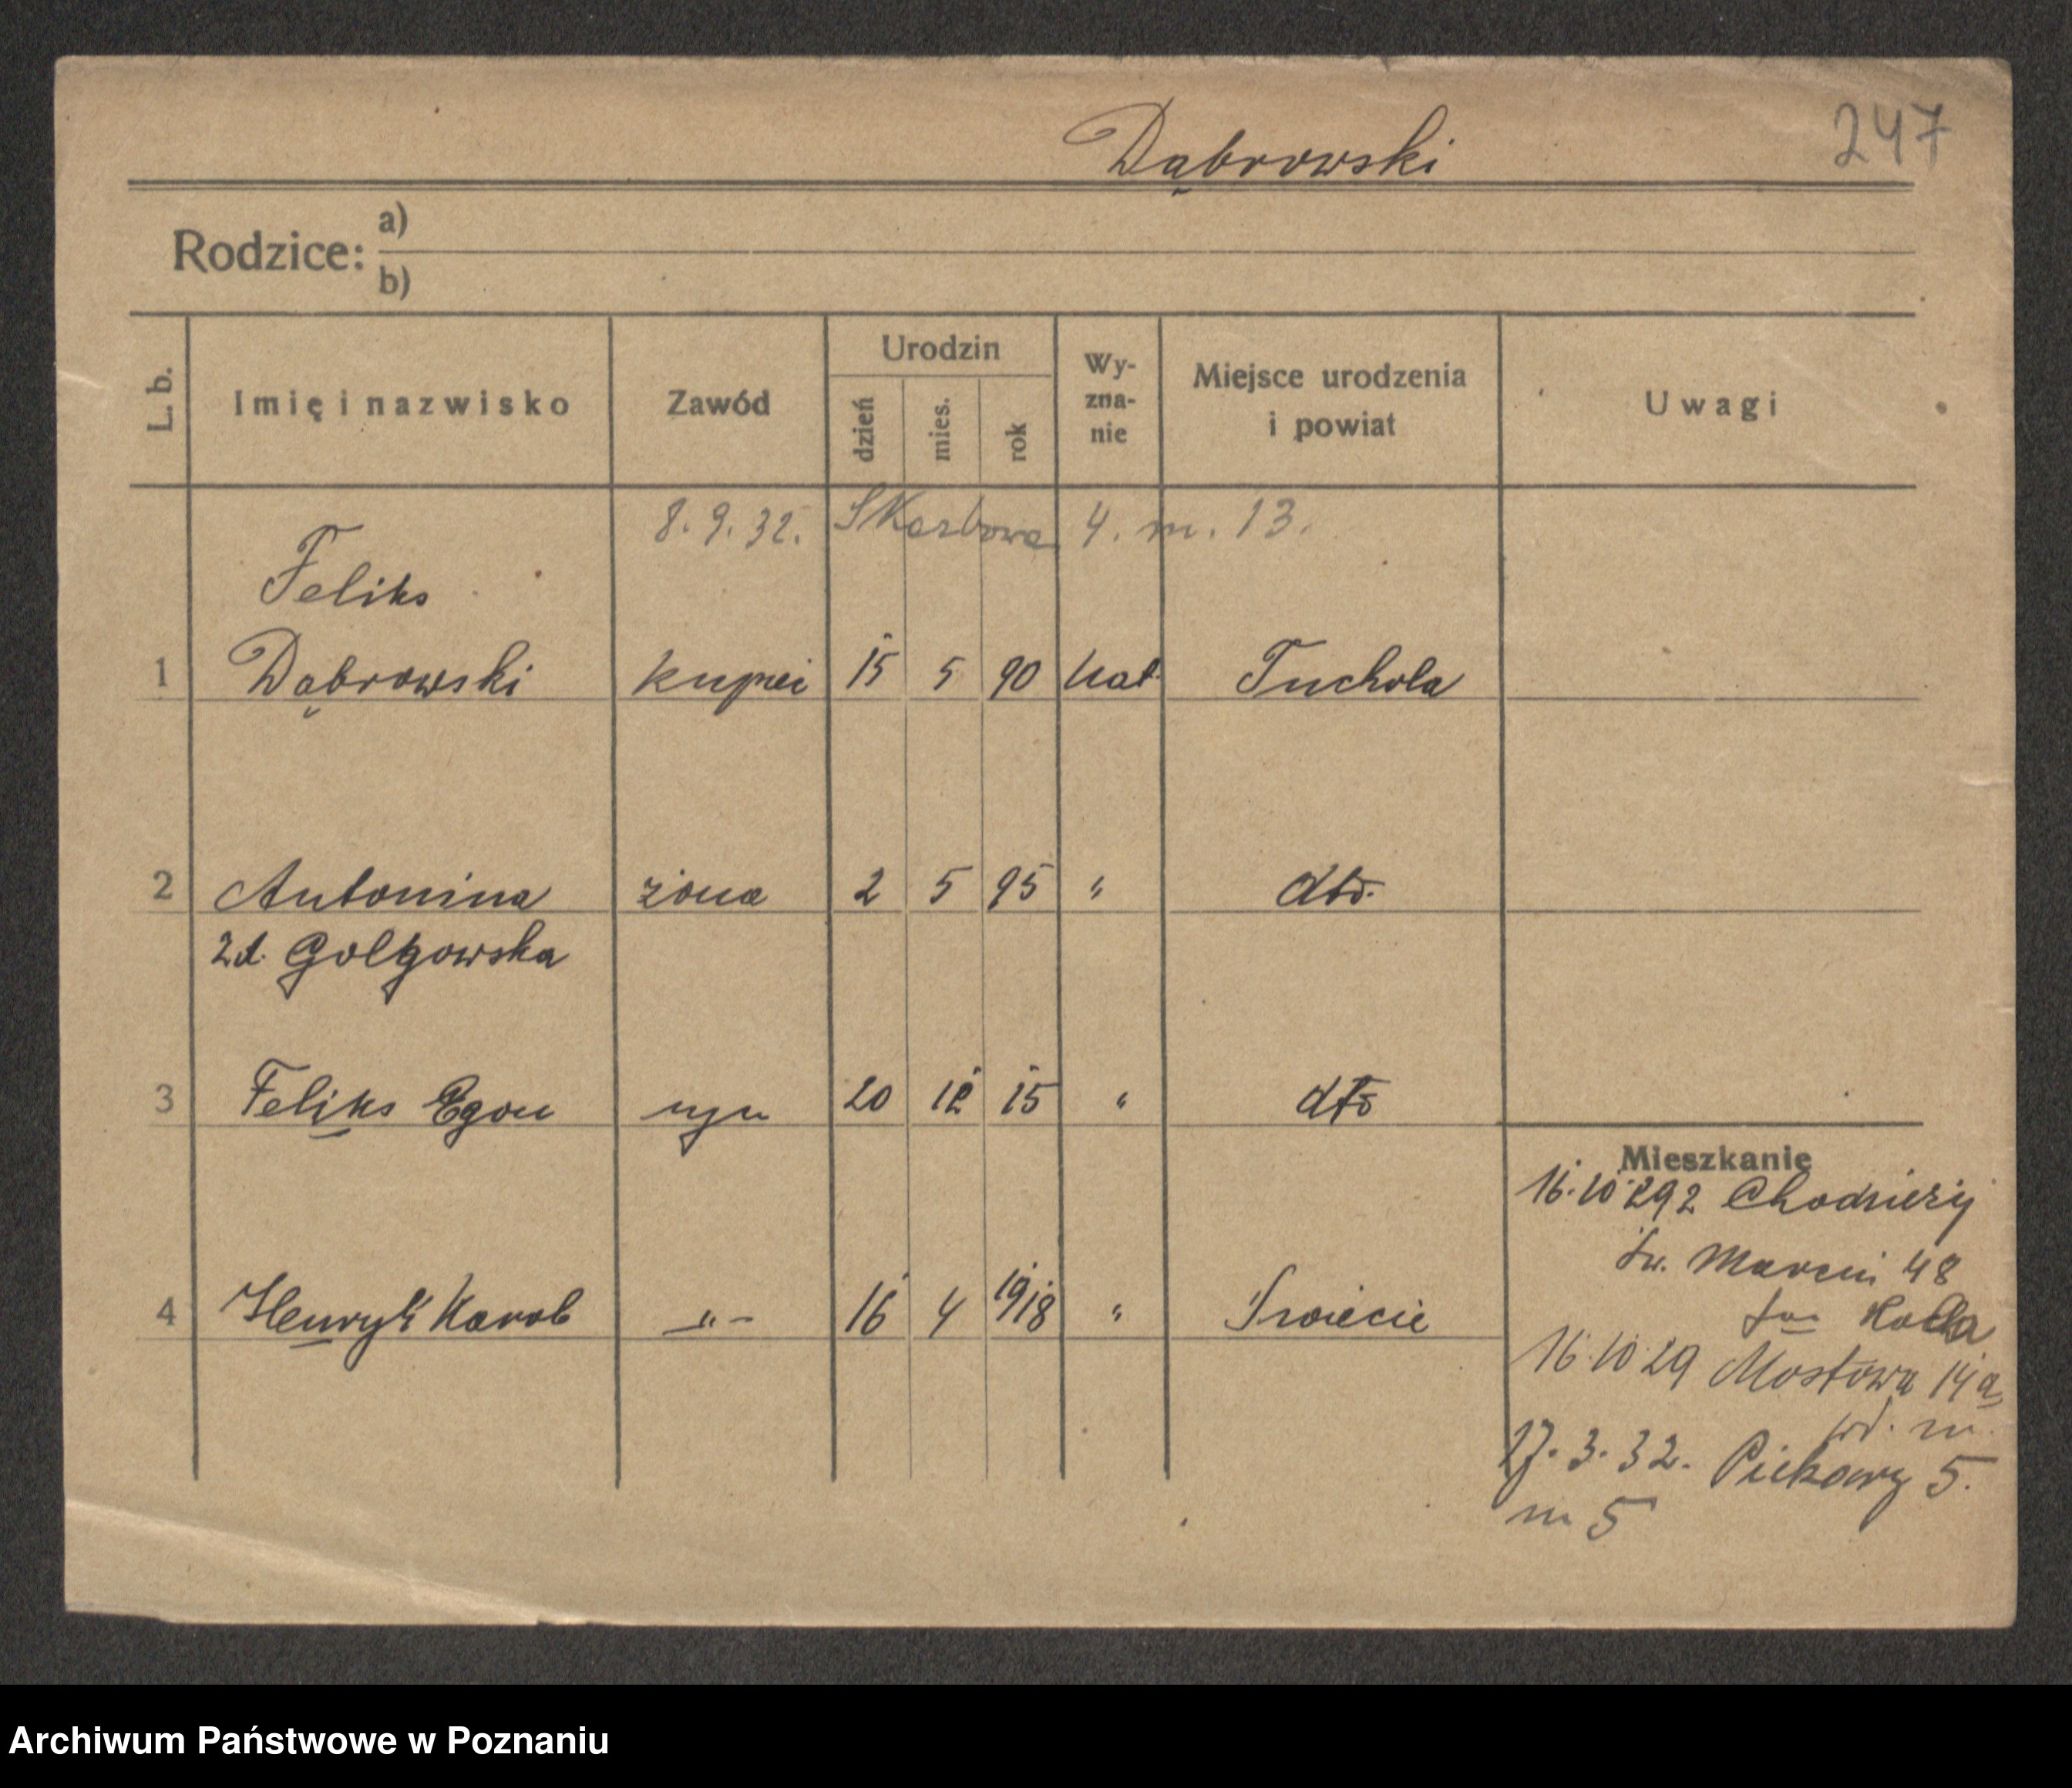 247
Dąbrowski
Rodzice: a)
b)
L. b. Imię i nazwisko Zawód Urodzin dzień mies. rok Wy-zna-nie Miejsce urodzenia i powiat Uwagi
8.9.32. Skarbowa 4. m. 13.
Feliks
1 Dąbrowski kupiec 15 5 90 kat. Tuchola
2 Antonina żona 2 5 95 " dto.
zd.
3 Feliks Egon syn 20 12 15 " dto
Mieszkanie
16.10.29 z Chodzieży
św. Marcin 48
4 Henryk Karol –"– 16 4 1918 " Świecie
16.10.29 Mostowa 14a
17.3.32. Piekary 5.
m 5
Archiwum Państwowe w Poznaniu